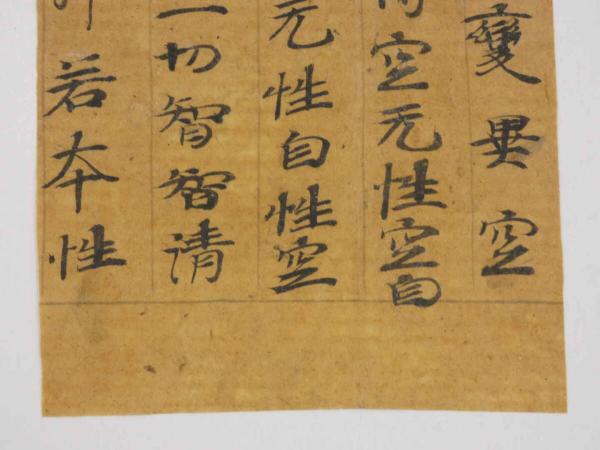 變異空
空无性空自
无性自性空
一切智智清
若本性